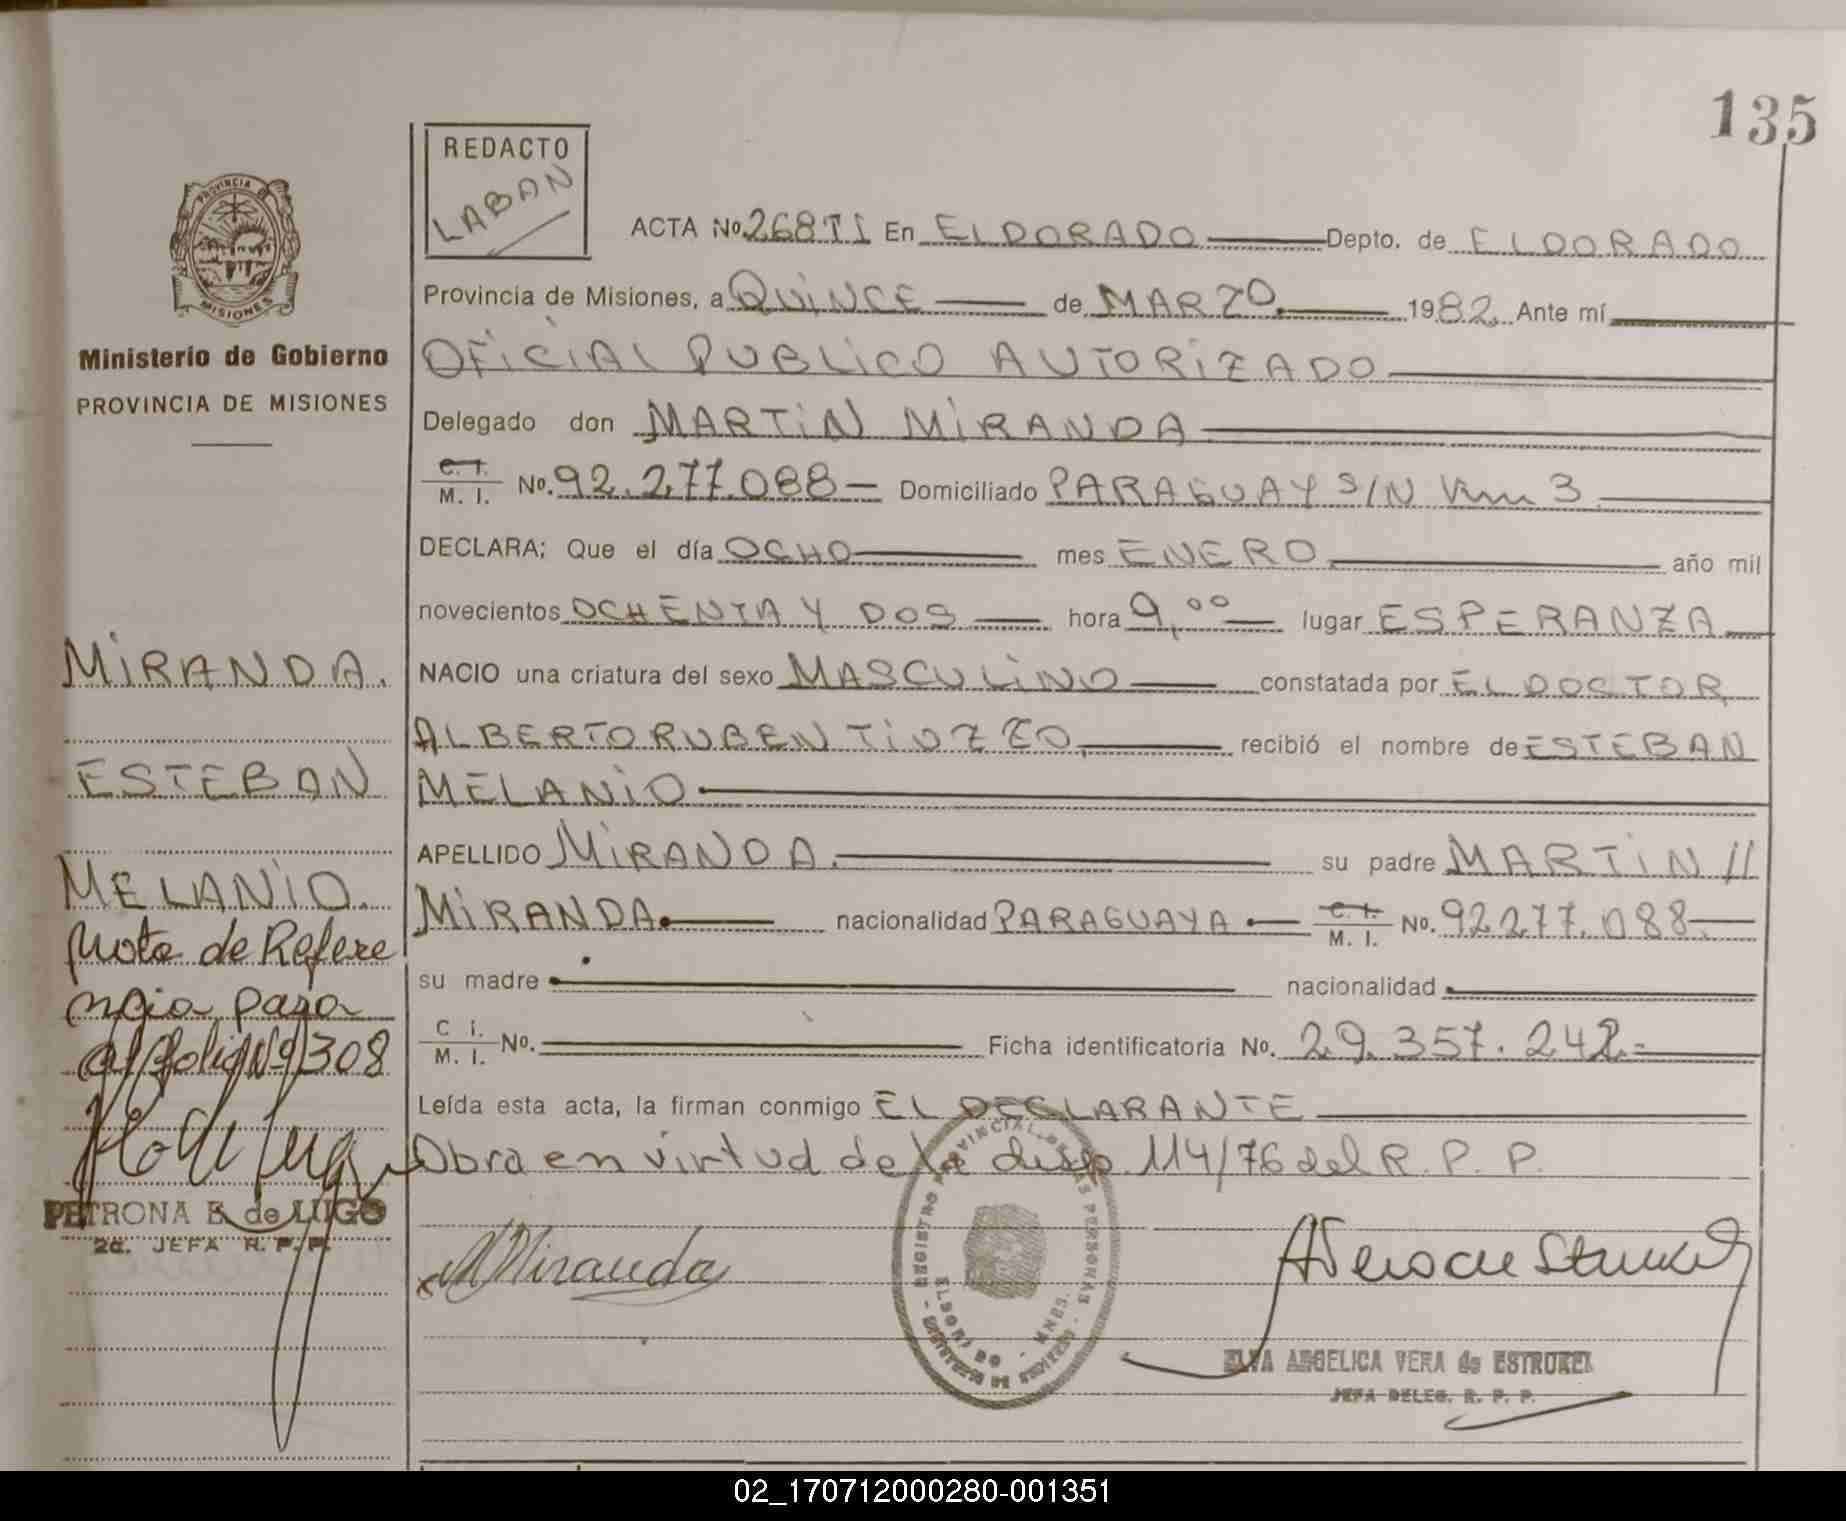 135
REDACTO
LABAN
ACTA No. 268 TI En ELDORADO Depto. de ELDORADO
Provincia de Misiones, a QUINCE de MARZO. 1982. Ante mí
OFICIAL PUBLICO AUTORIZADO
Delegado don MARTIN MIRANDA
C. I. M. I. No. 92.277.088 Domiciliado PARAGUAY S/N Km 3
DECLARA; Que el día OCHO mes ENERO año mil
novecientos OCHENTA Y DOS hora 9,00 lugar ESPERANZA
NACIO una criatura del sexo MASCULINO constatada por EL DOCTOR
ALBERTO RUBEN TIOZZO recibió el nombre de ESTEBAN
MELANIO
APELLIDO MIRANDA. su padre MARTIN //
MIRANDA. nacionalidad PARAGUAYA C. I. M. I. No. 92.277.088
su madre nacionalidad
C i. M. I. No. Ficha identificatoria No. 29.357.242.-
Leída esta acta, la firman conmigo EL DECLARANTE
Obra en virtud de la disp 114/76 del R. P. P.
MMiranda
REGISTRO PROVINCIAL DE LAS PERSONAS
ELDORADO
MNES.
ELVA ANGELICA VERA de ESTRUKEL
JEFA DELEG. R. P. P.
PROVINCIA DE
MISIONES
Ministerio de Gobierno
PROVINCIA DE MISIONES
MIRANDA.
ESTEBAN
MELANIO.
Nota de Refere
ncia pasa
al folio Nº 308
PETRONA E. de LUGO
2a. JEFA R. P. P.
02_170712000280-001351